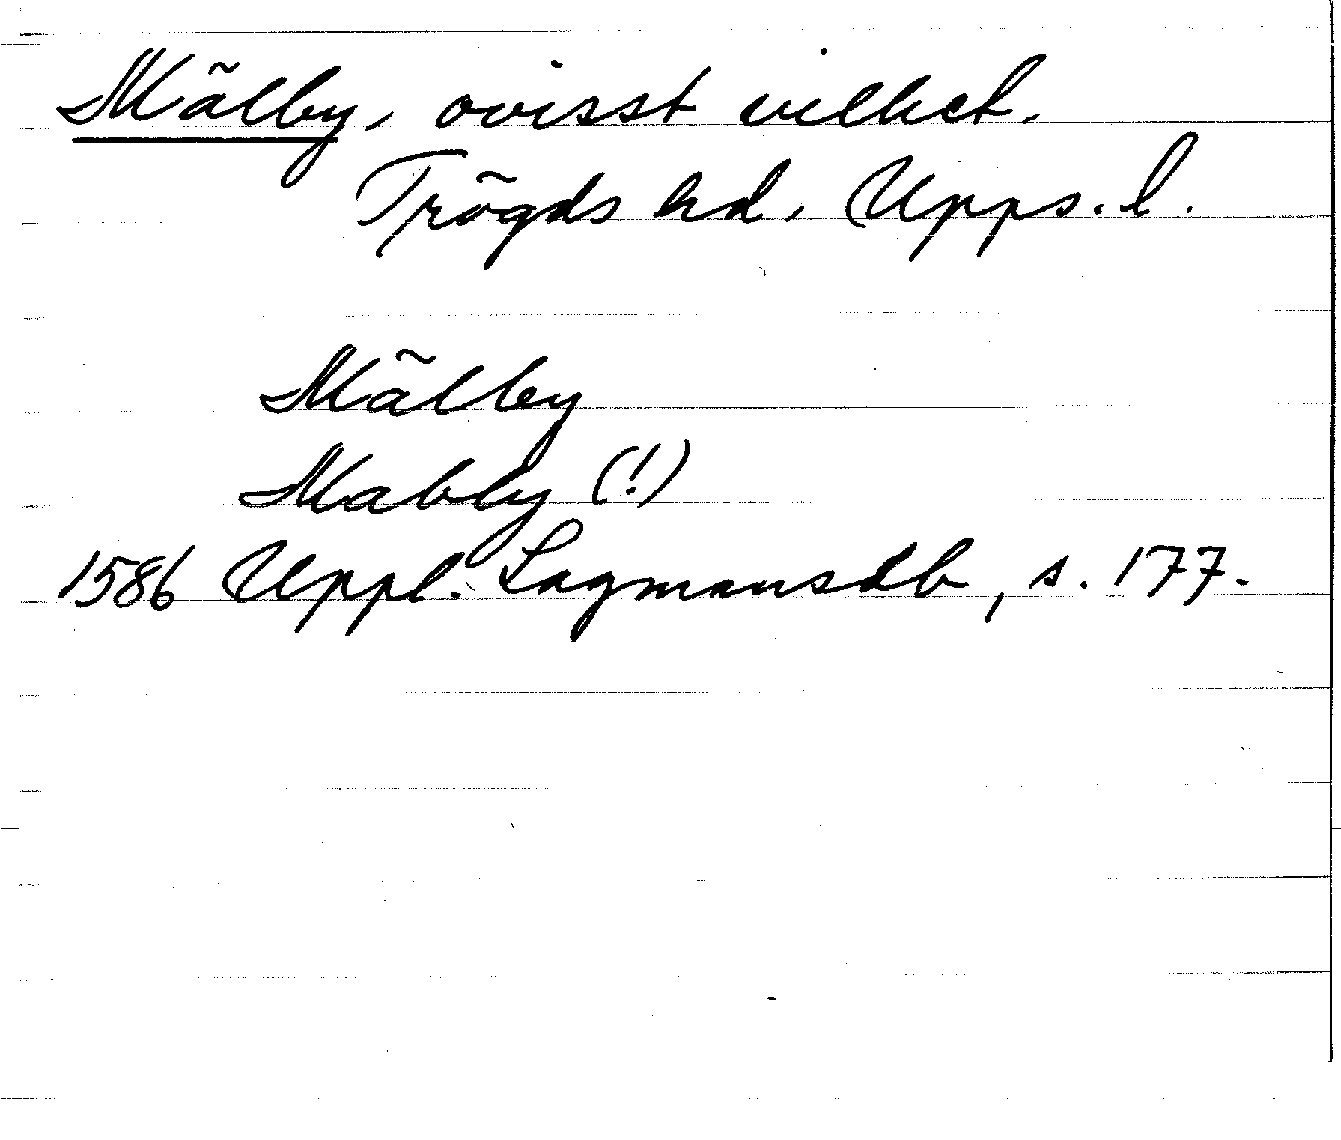 Mälby, ovisst vilket.
Trögds hd, Upps. l.
Mälby
Mably (!)
1586 Uppl. Lagmansdb, s. 177.